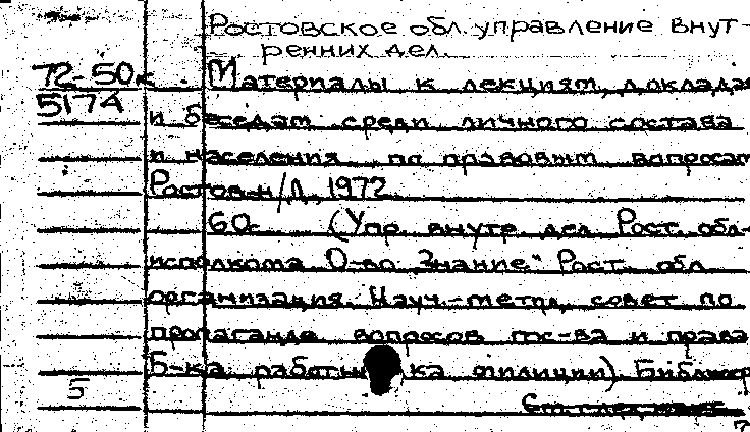 Ростовское обл. управление внут-
ренних дел.
72-50к
5174
Материалы к лекциям, доклада
и беседам среди личного состава
и населения по правовым вопросам
Ростов н/Д, 1972.
60с. (Упр. внутр. дел Рост. обл-
исполкома О-во "Знание" Рост. обл.
организация. Науч.-метод. совет по
пропаганде вопросов гос-ва и права
Б-ка работы ка милиции). Библиогр
5
См. след.